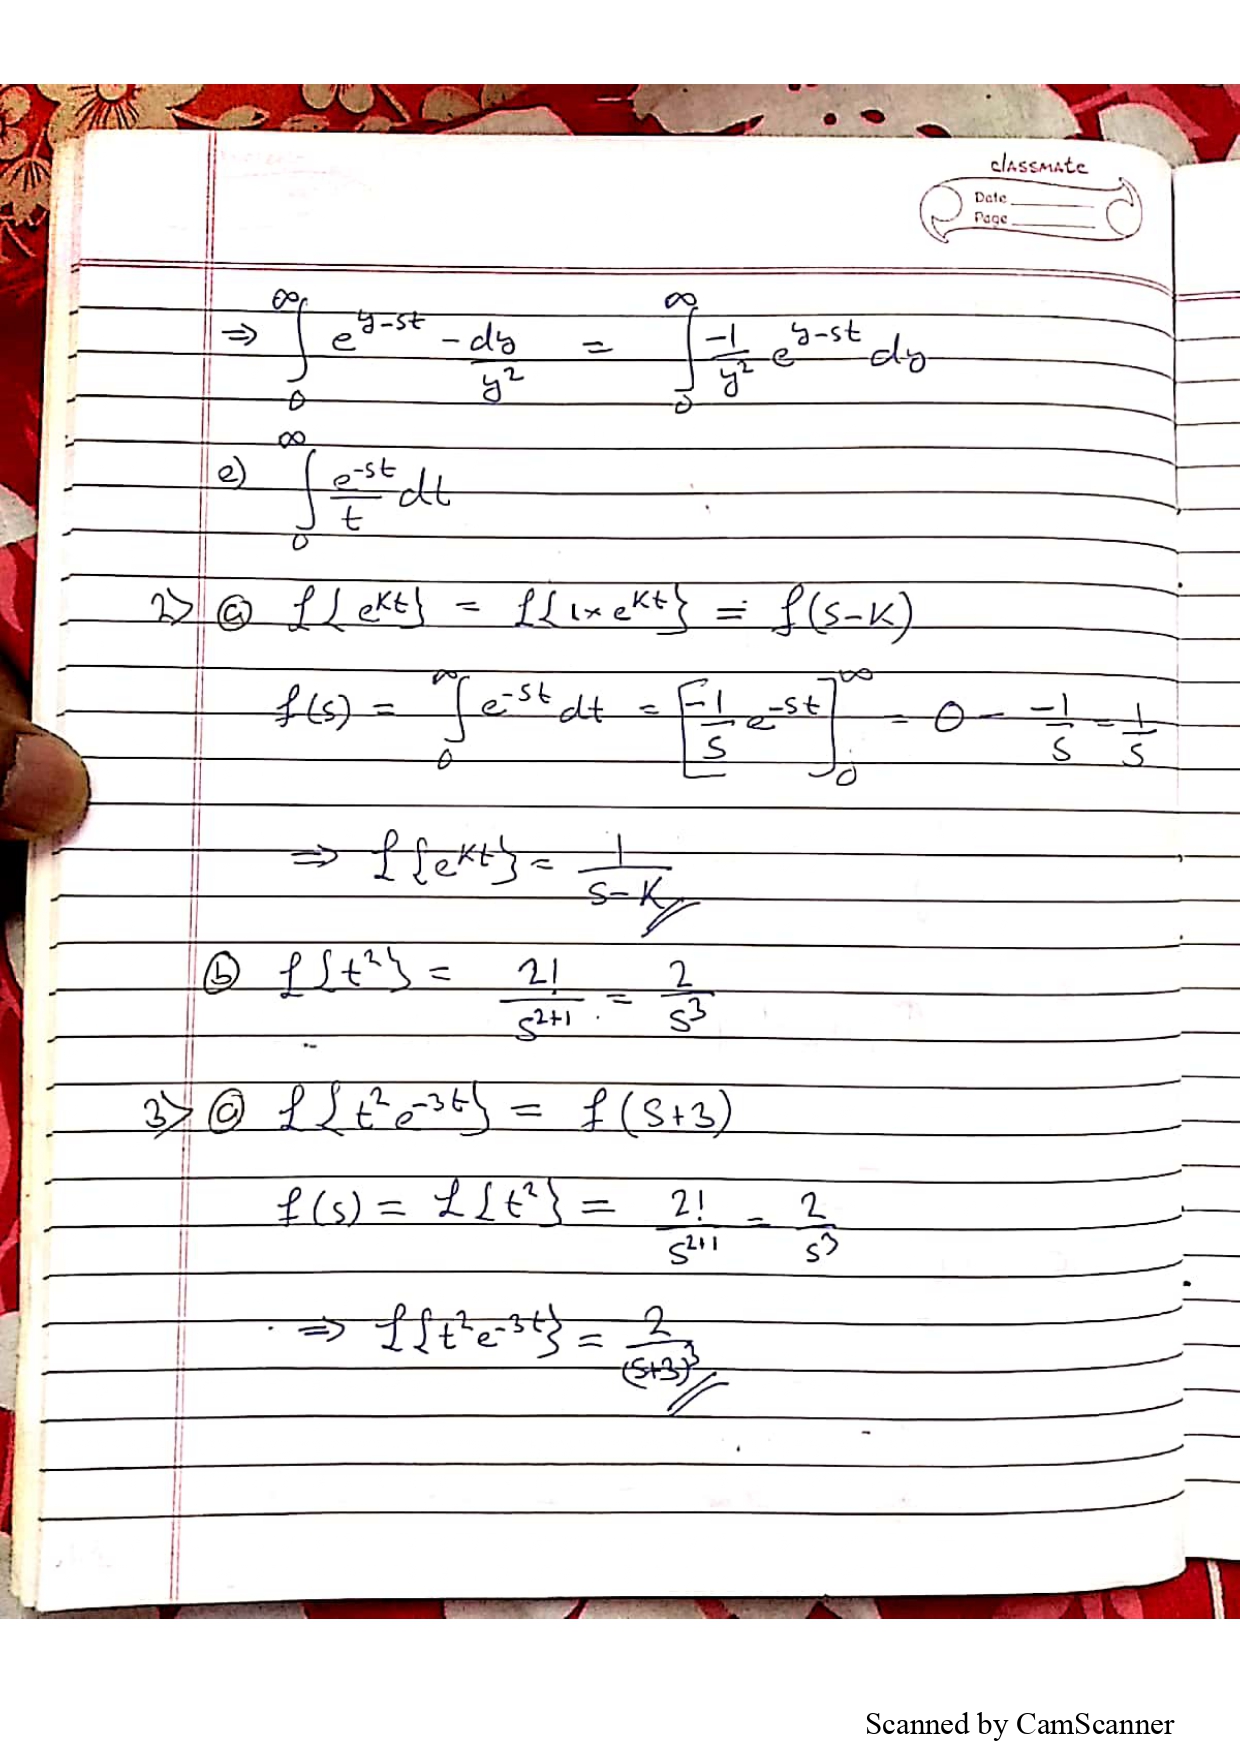 classmate
Date
Page
⇒ ∫₀^∞ e^{y-st} -dy/y² = ∫₀^∞ -1/y² e^{y-st} dy
e) ∫₀^∞ e^{-st}/t dt
2> ⓐ £{e^{kt}} = £{1×e^{kt}} = f(s-k)
f(s) = ∫₀^∞ e^{-st} dt = [-1/s e^{-st}]₀^∞ = 0 - -1/s = 1/s
⇒ £{e^{kt}} = 1/(s-k)
ⓑ £{t²} = 2!/s^{2+1} = 2/s³
3> ⓐ £{t²e^{-3t}} = f(s+3)
f(s) = £{t²} = 2!/s^{2+1} = 2/s³
⇒ £{t²e^{-3t}} = 2/(s+3)³
Scanned by CamScanner